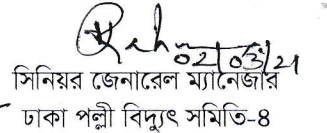 02/03/21
সিনিয়র জেনারেল ম্যানেজার
ঢাকা পল্লী বিদ্যুৎ সমিতি-৪